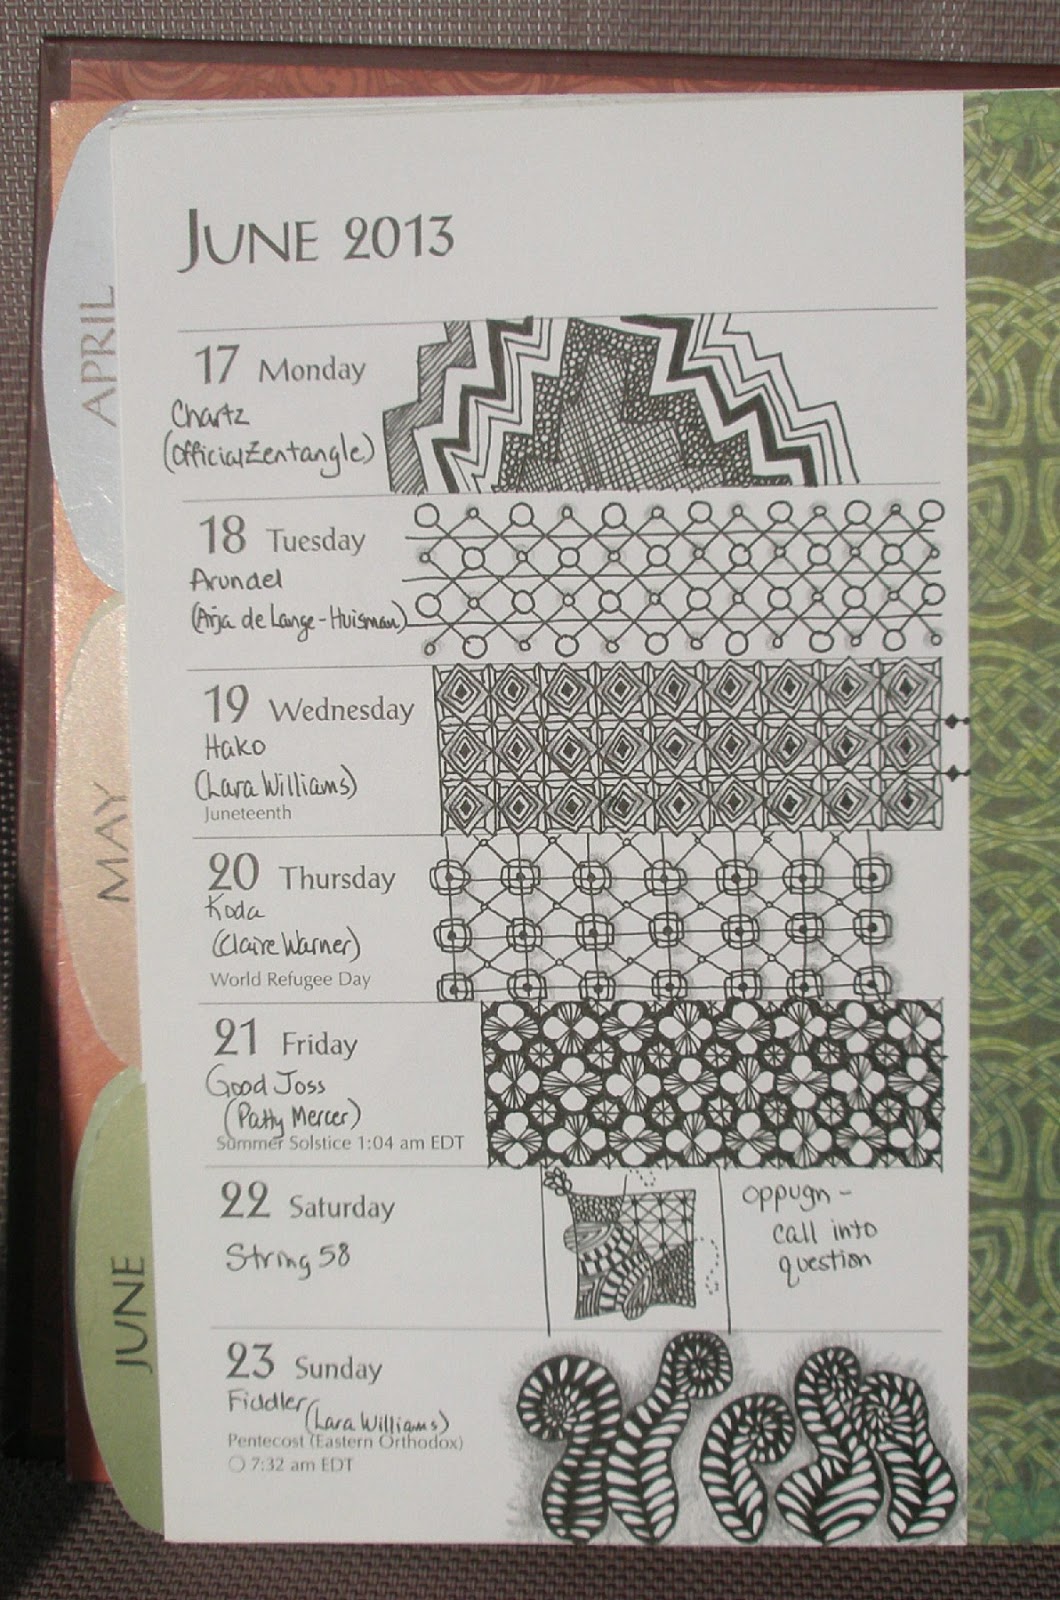 JUNE 2013
APRIL
MAY
JUNE
17 Monday
Chartz
(Official Zentangle)
18 Tuesday
Arundel
(Arja de Lange-Huisman)
19 Wednesday
Hako
(Lara Williams)
Juneteenth
20 Thursday
Koda
(Claire Warner)
World Refugee Day
21 Friday
Good Joss
(Patty Mercer)
Summer Solstice 1:04 am EDT
22 Saturday
String 58
oppugn -
call into
question
23 Sunday
Fiddler (Lara Williams)
Pentecost (Eastern Orthodox)
7:32 am EDT